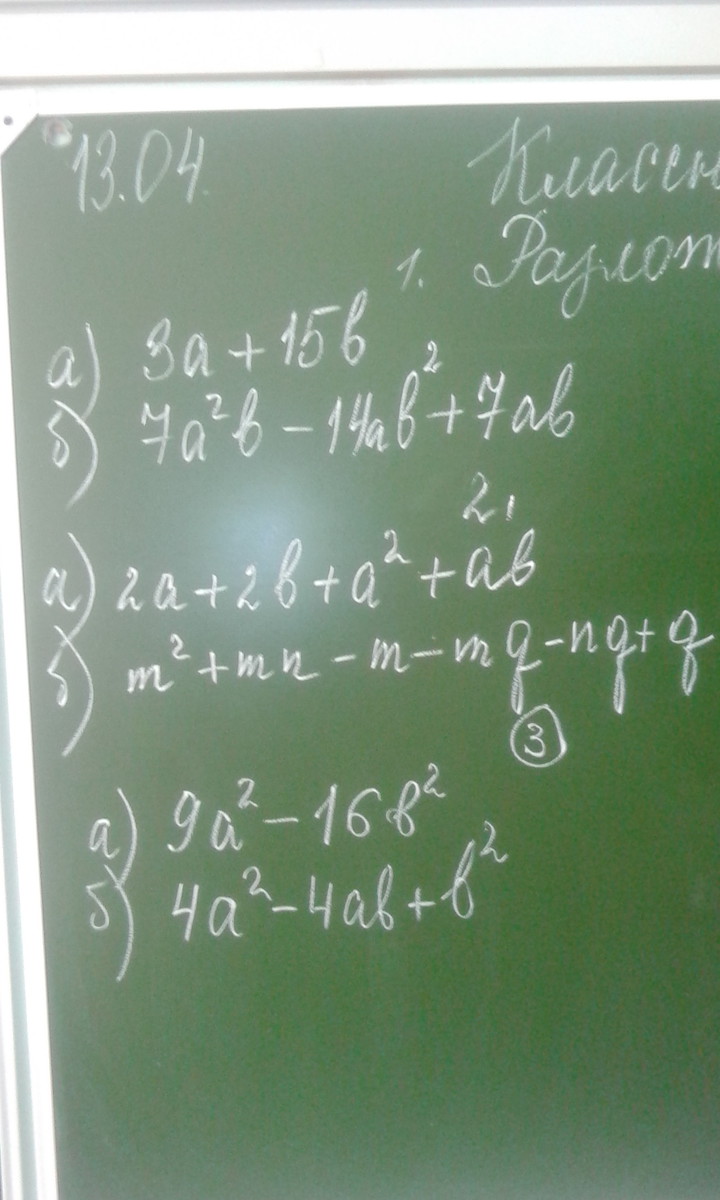 13.04. Классн
1. Разлож
а) 3a + 15b
б) 7a²b – 14ab² + 7ab
2.
а) 2a + 2b + a² + ab
б) m² + mn – m – mq – nq + q
3
а) 9a² – 16b²
б) 4a² – 4ab + b²